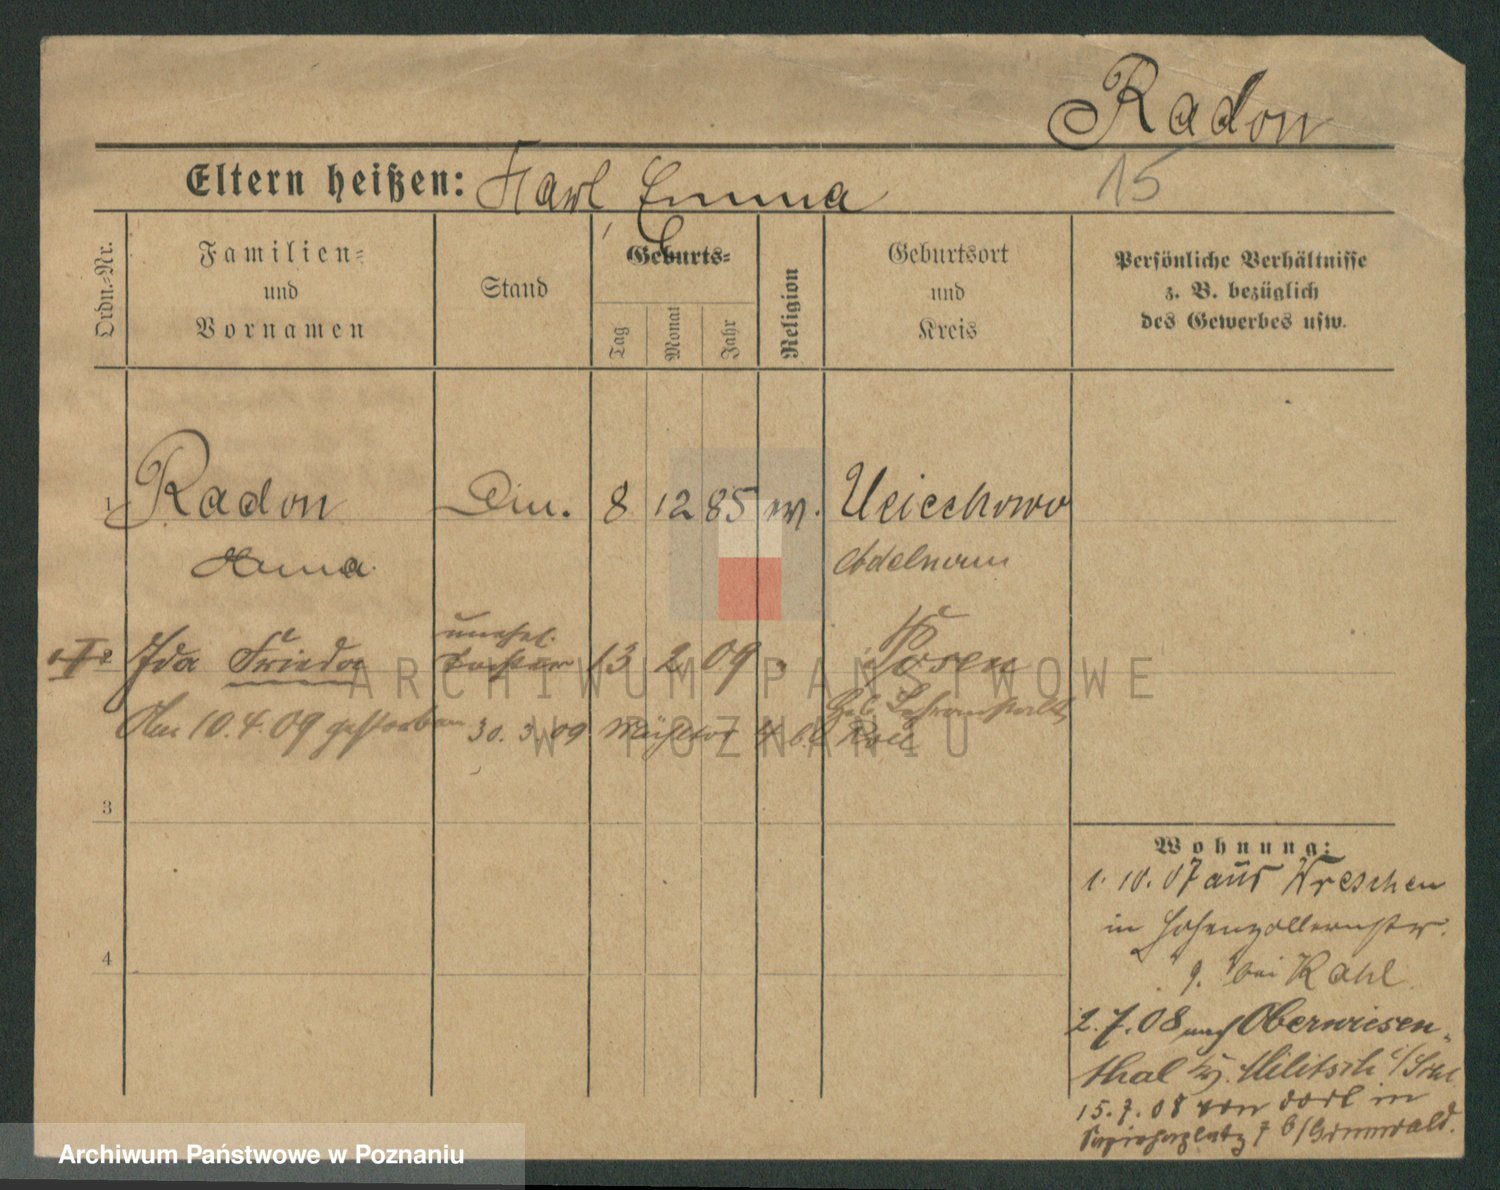 Radon
Eltern heißen: Karl, Emma
15
Ordn.=Nr.
Familien=
und
Vornamen
Stand
Geburts=
Tag
Monat
Jahr
Religion
Geburtsort
und
Kreis
Persönliche Verhältnisse
z. B. bezüglich
des Gewerbes usw.
1 Radon Din. 8 12 85 ev.
Adelnau
unehel.
2 Ida Frieda Tochter 13 2 09 Posen
Am 10.4.09 gestorben 30. 3. 09
3
4
Wohnung:
1. 10. 07 aus Wreschen
in Hohenzollernstr.
9. bei Kahl
2. 7. 08 nach Oberwiesen-
thal Militsch
15. 7. 08 von dort in
7 b/Grunwald.
ARCHIWUM PAŃSTWOWE
W POZNANIU
Archiwum Państwowe w Poznaniu